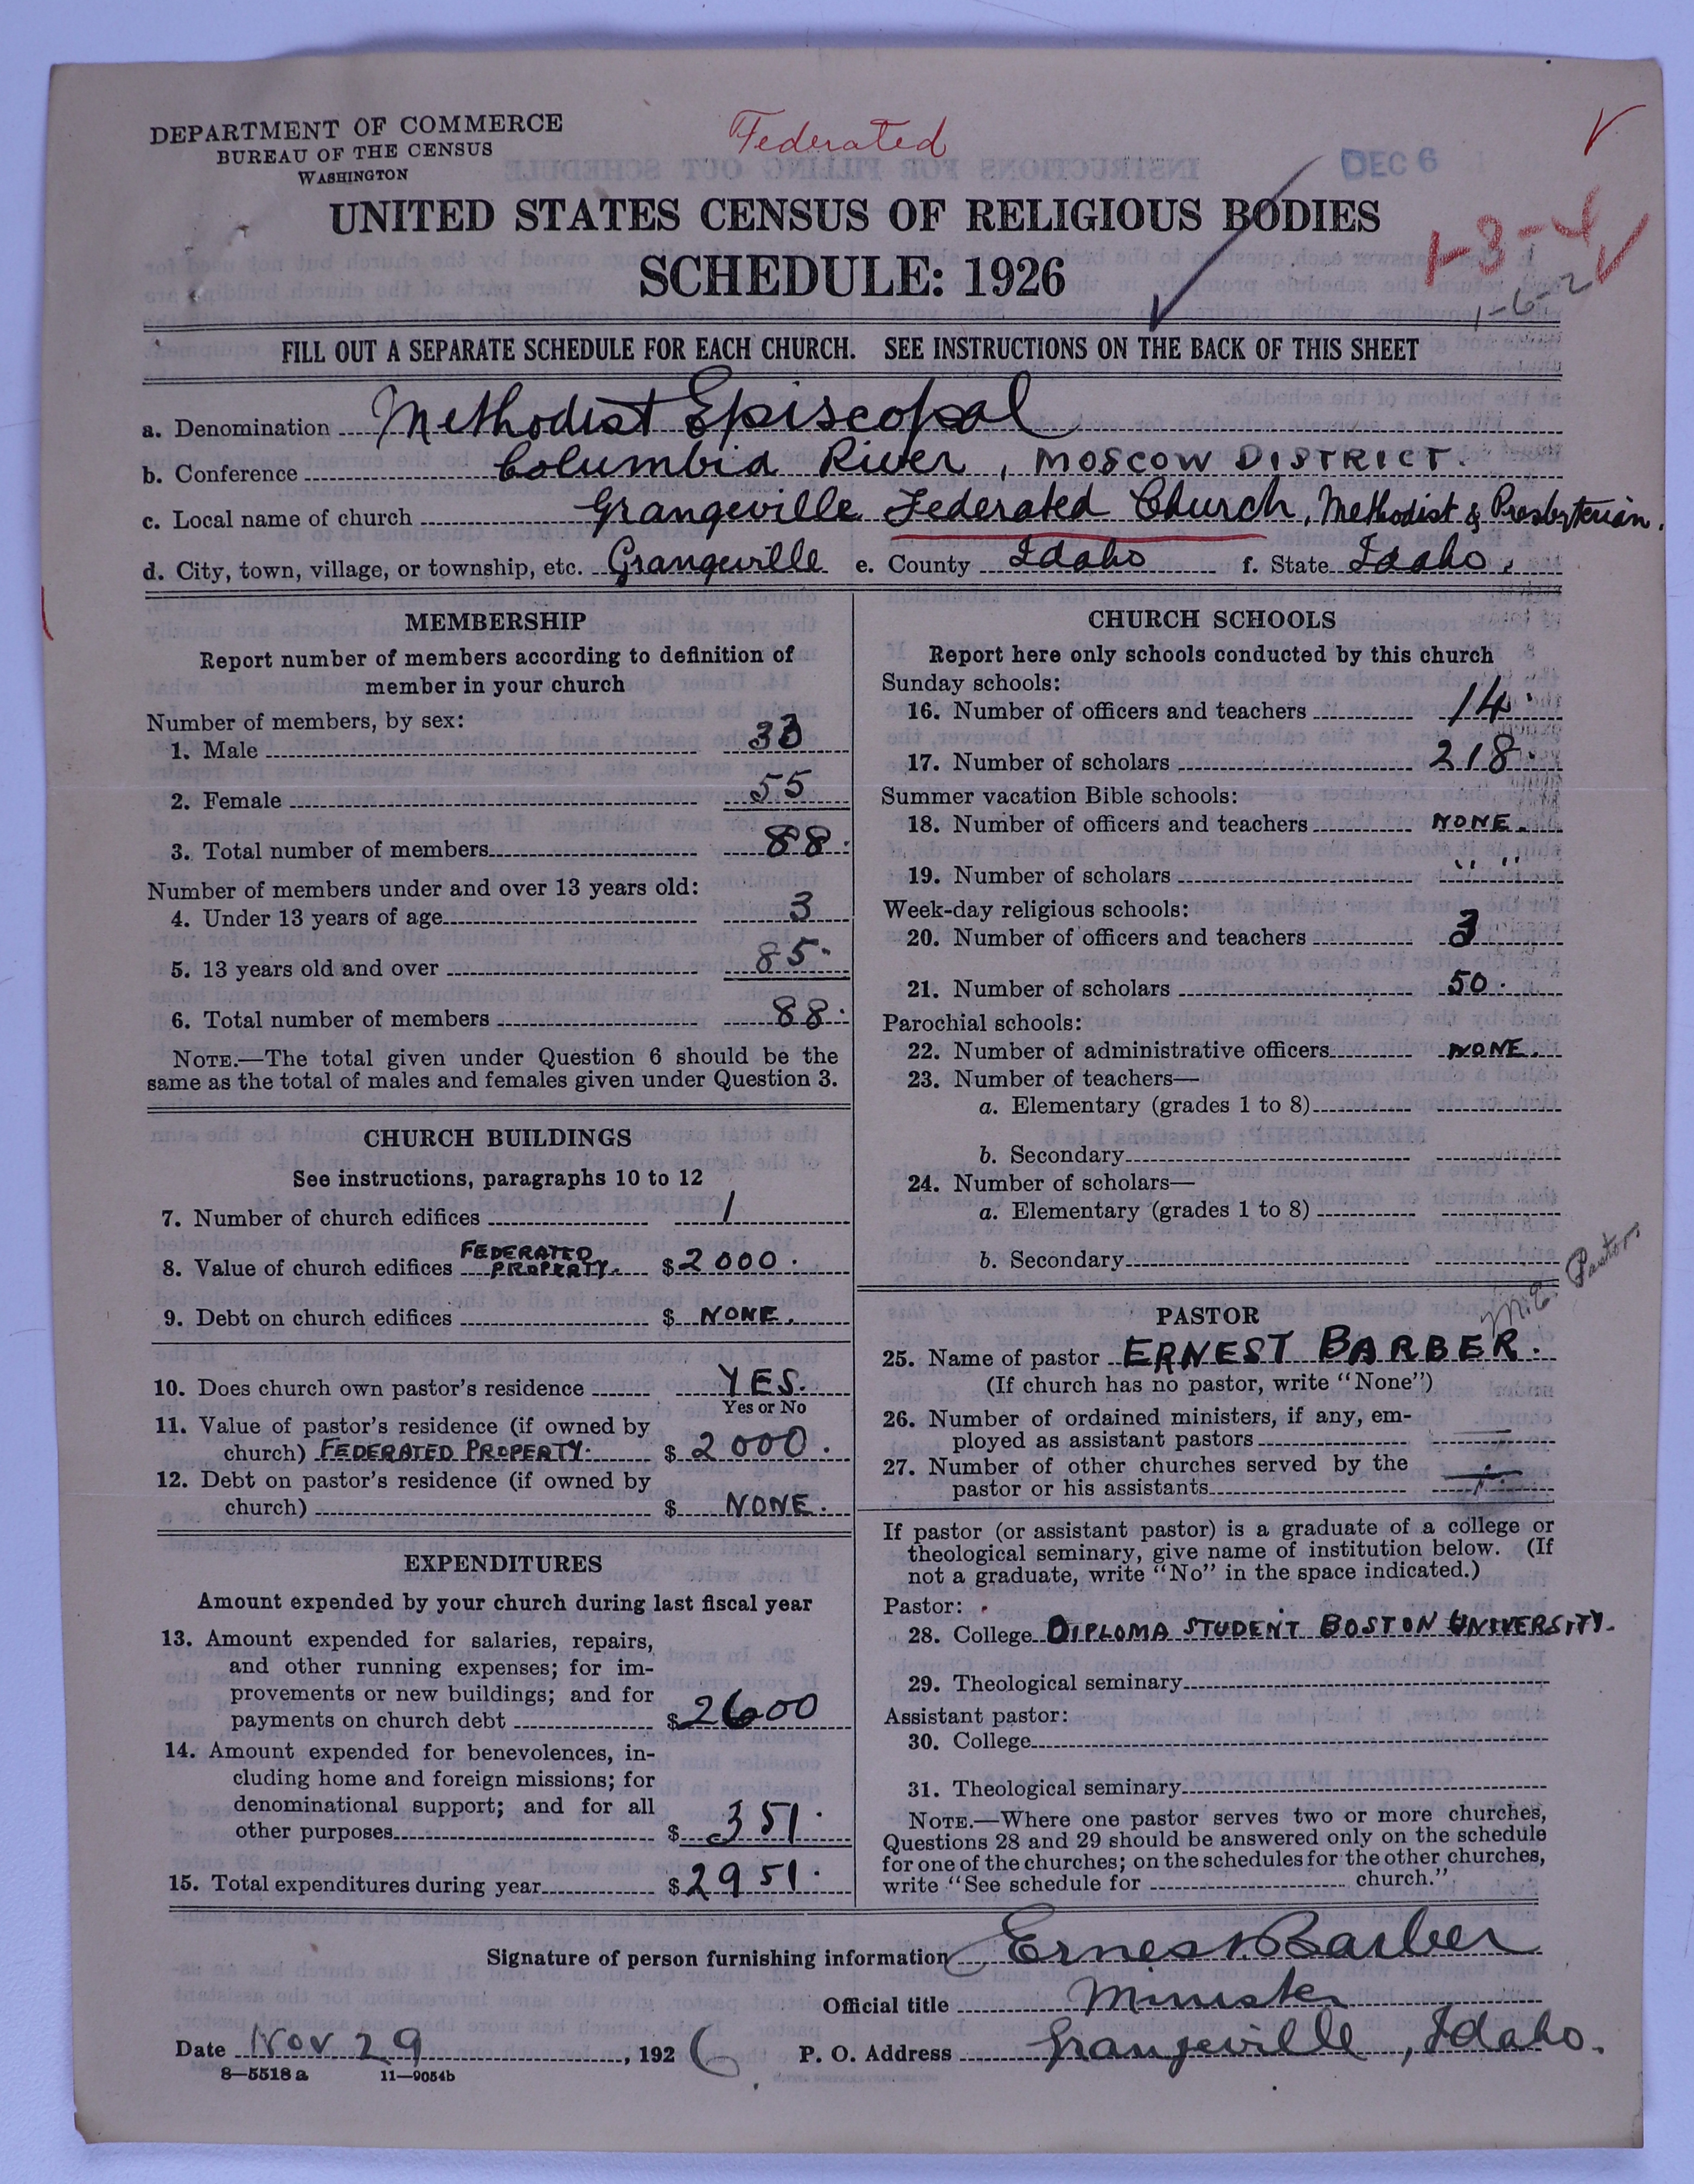 DEPARTMENT OF COMMERCE
BUREAU OF THE CENSUS
WASHINGTON
Federated
DEC 6
UNITED STATES CENSUS OF RELIGIOUS BODIES
SCHEDULE: 1926
1-3-4
1-6-2
FILL OUT A SEPARATE SCHEDULE FOR EACH CHURCH. SEE INSTRUCTIONS ON THE BACK OF THIS SHEET
a. Denomination Methodist Episcopal
b. Conference Columbia River, MOSCOW DISTRICT.
c. Local name of church Grangeville Federated Church, Methodist & Presbyterian.
d. City, town, village, or township, etc. Grangeville e. County Idaho f. State Idaho.
MEMBERSHIP
Report number of members according to definition of
member in your church
Number of members, by sex:
1. Male 33
2. Female 55
3. Total number of members 88.
Number of members under and over 13 years old:
4. Under 13 years of age 3
5. 13 years old and over 85.
6. Total number of members 88.
NOTE.—The total given under Question 6 should be the
same as the total of males and females given under Question 3.
CHURCH BUILDINGS
See instructions, paragraphs 10 to 12
7. Number of church edifices 1
8. Value of church edifices FEDERATED PROPERTY. $2000.
9. Debt on church edifices $ NONE.
10. Does church own pastor's residence YES.
Yes or No
11. Value of pastor's residence (if owned by
church) FEDERATED PROPERTY. $2000.
12. Debt on pastor's residence (if owned by
church) $ NONE.
EXPENDITURES
Amount expended by your church during last fiscal year
13. Amount expended for salaries, repairs,
and other running expenses; for im-
provements or new buildings; and for
payments on church debt $2600
14. Amount expended for benevolences, in-
cluding home and foreign missions; for
denominational support; and for all
other purposes $351.
15. Total expenditures during year $2951.
CHURCH SCHOOLS
Report here only schools conducted by this church
Sunday schools:
16. Number of officers and teachers 14.
17. Number of scholars 218.
Summer vacation Bible schools:
18. Number of officers and teachers NONE.
19. Number of scholars " "
Week-day religious schools:
20. Number of officers and teachers 3
21. Number of scholars 50.
Parochial schools:
22. Number of administrative officers NONE.
23. Number of teachers—
a. Elementary (grades 1 to 8)
b. Secondary
24. Number of scholars—
a. Elementary (grades 1 to 8)
b. Secondary
M.E. Pastor
PASTOR
25. Name of pastor ERNEST BARBER.
(If church has no pastor, write "None")
26. Number of ordained ministers, if any, em-
ployed as assistant pastors —
27. Number of other churches served by the
pastor or his assistants
If pastor (or assistant pastor) is a graduate of a college or
theological seminary, give name of institution below. (If
not a graduate, write "No" in the space indicated.)
Pastor:
28. College DIPLOMA STUDENT BOSTON UNIVERSITY.
29. Theological seminary
Assistant pastor:
30. College
31. Theological seminary
NOTE.—Where one pastor serves two or more churches,
Questions 28 and 29 should be answered only on the schedule
for one of the churches; on the schedules for the other churches,
write "See schedule for church."
Signature of person furnishing information Ernest Barber
Official title Minister
Date Nov 29, 1926 P. O. Address Grangeville, Idaho.
8—5518a 11—9054b